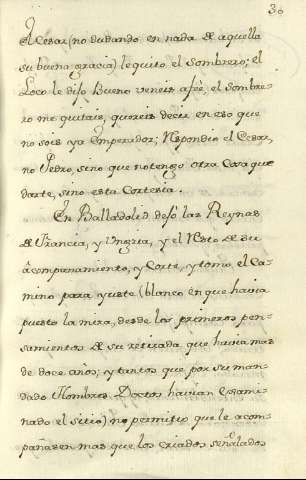 30
el Cesar (no dudando en nada de aquella
su buena gracia) le quito el sombrero; el
Loco le dixo Bueno veneis afeè, el sombre-
ro me quitais, quereis decir en eso que
no sois ya Emperador; Respondio el Cesar,
no Pedro, sino que no tengo otra Cosa que
darte, sino esta Cortesia.
En Balladolid dexó las Reynas
de Francia, y Ungria, y el Resto de su
acompañamiento, y Corte, y tomo el Ca-
mino para yuste (blanco en que havia
puesto la mira, desde los primeros pen-
samientos de su retirada que havia mas
de doce años; y tantos que por su man-
dado Hombres Doctos havian Exami-
nado el sitio) no permitio que le acom-
pañasen mas que los criados señalados